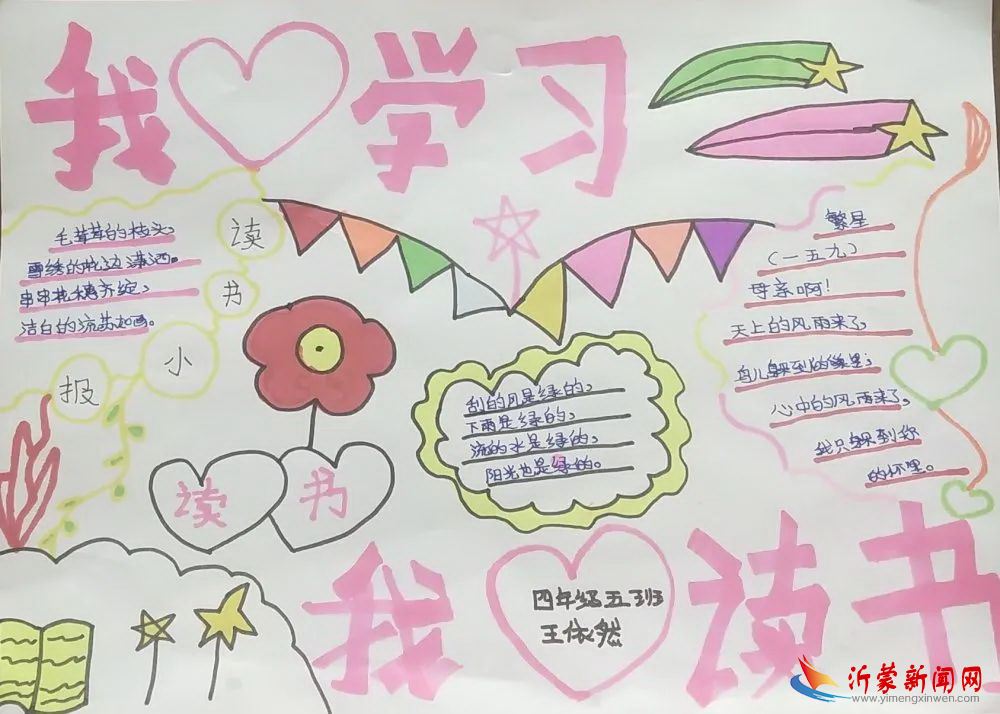 我 学习
读书小报
毛茸茸的枝头,
雪绣的枕边潇洒。
串串花穗齐绽,
洁白的流苏如画。
繁星
(一五九)
母亲啊!
天上的风雨来了,
鸟儿躲到的巢里;
心中的风雨来了,
我只躲到你
的怀里。
刮的风是绿的,
下雨是绿的,
流的水是绿的,
阳光也是绿的。
读书
我 读书
四年级五班
王依然
沂蒙新闻网
www.yimengxinwen.com